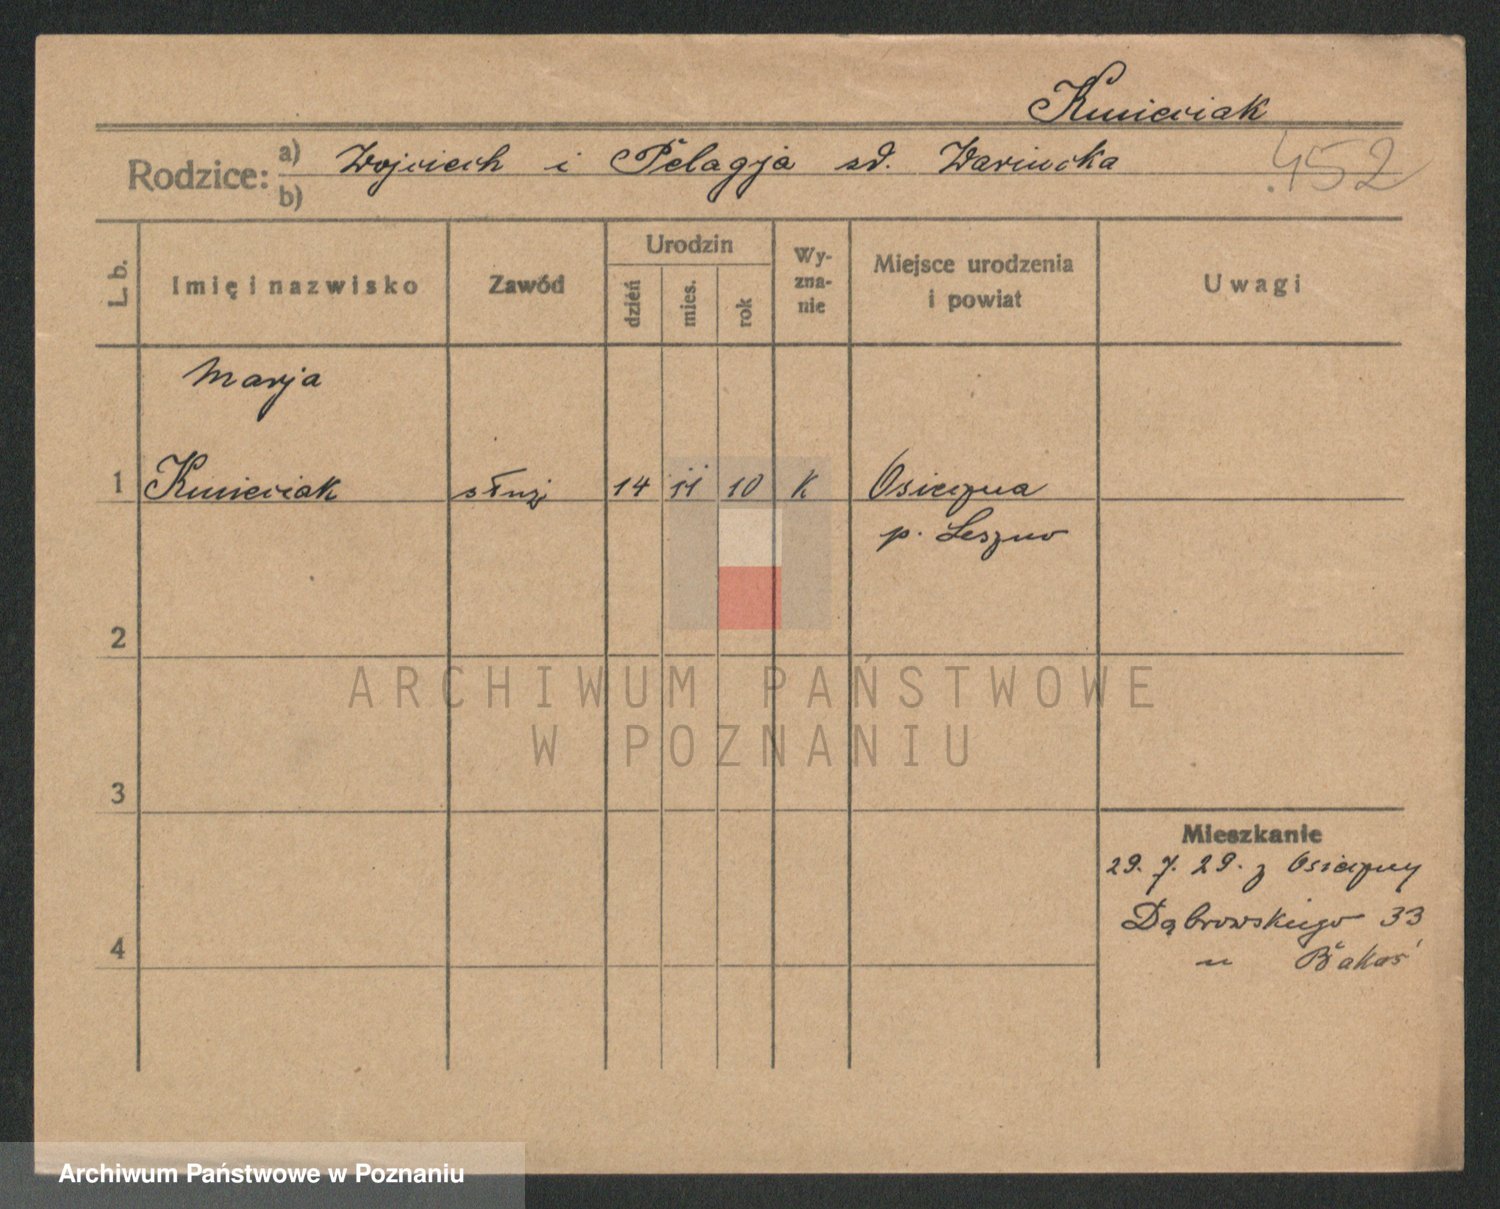 Kmieciak
Rodzice: a) Wojciech i Pelagja
b)
452
L. b.
Imię i nazwisko
Zawód
Urodzin
dzień
mies.
rok
Wy-
zna-
nie
Miejsce urodzenia
i powiat
Uwagi
Marja
1 Kmieciak służ 14 11 10 K Osieczna
p. Leszno
2
ARCHIWUM PAŃSTWOWE
W POZNANIU
3
Mieszkanie
29. 7. 29. z Osieczny
Dąbrowskiego 33
4
Archiwum Państwowe w Poznaniu